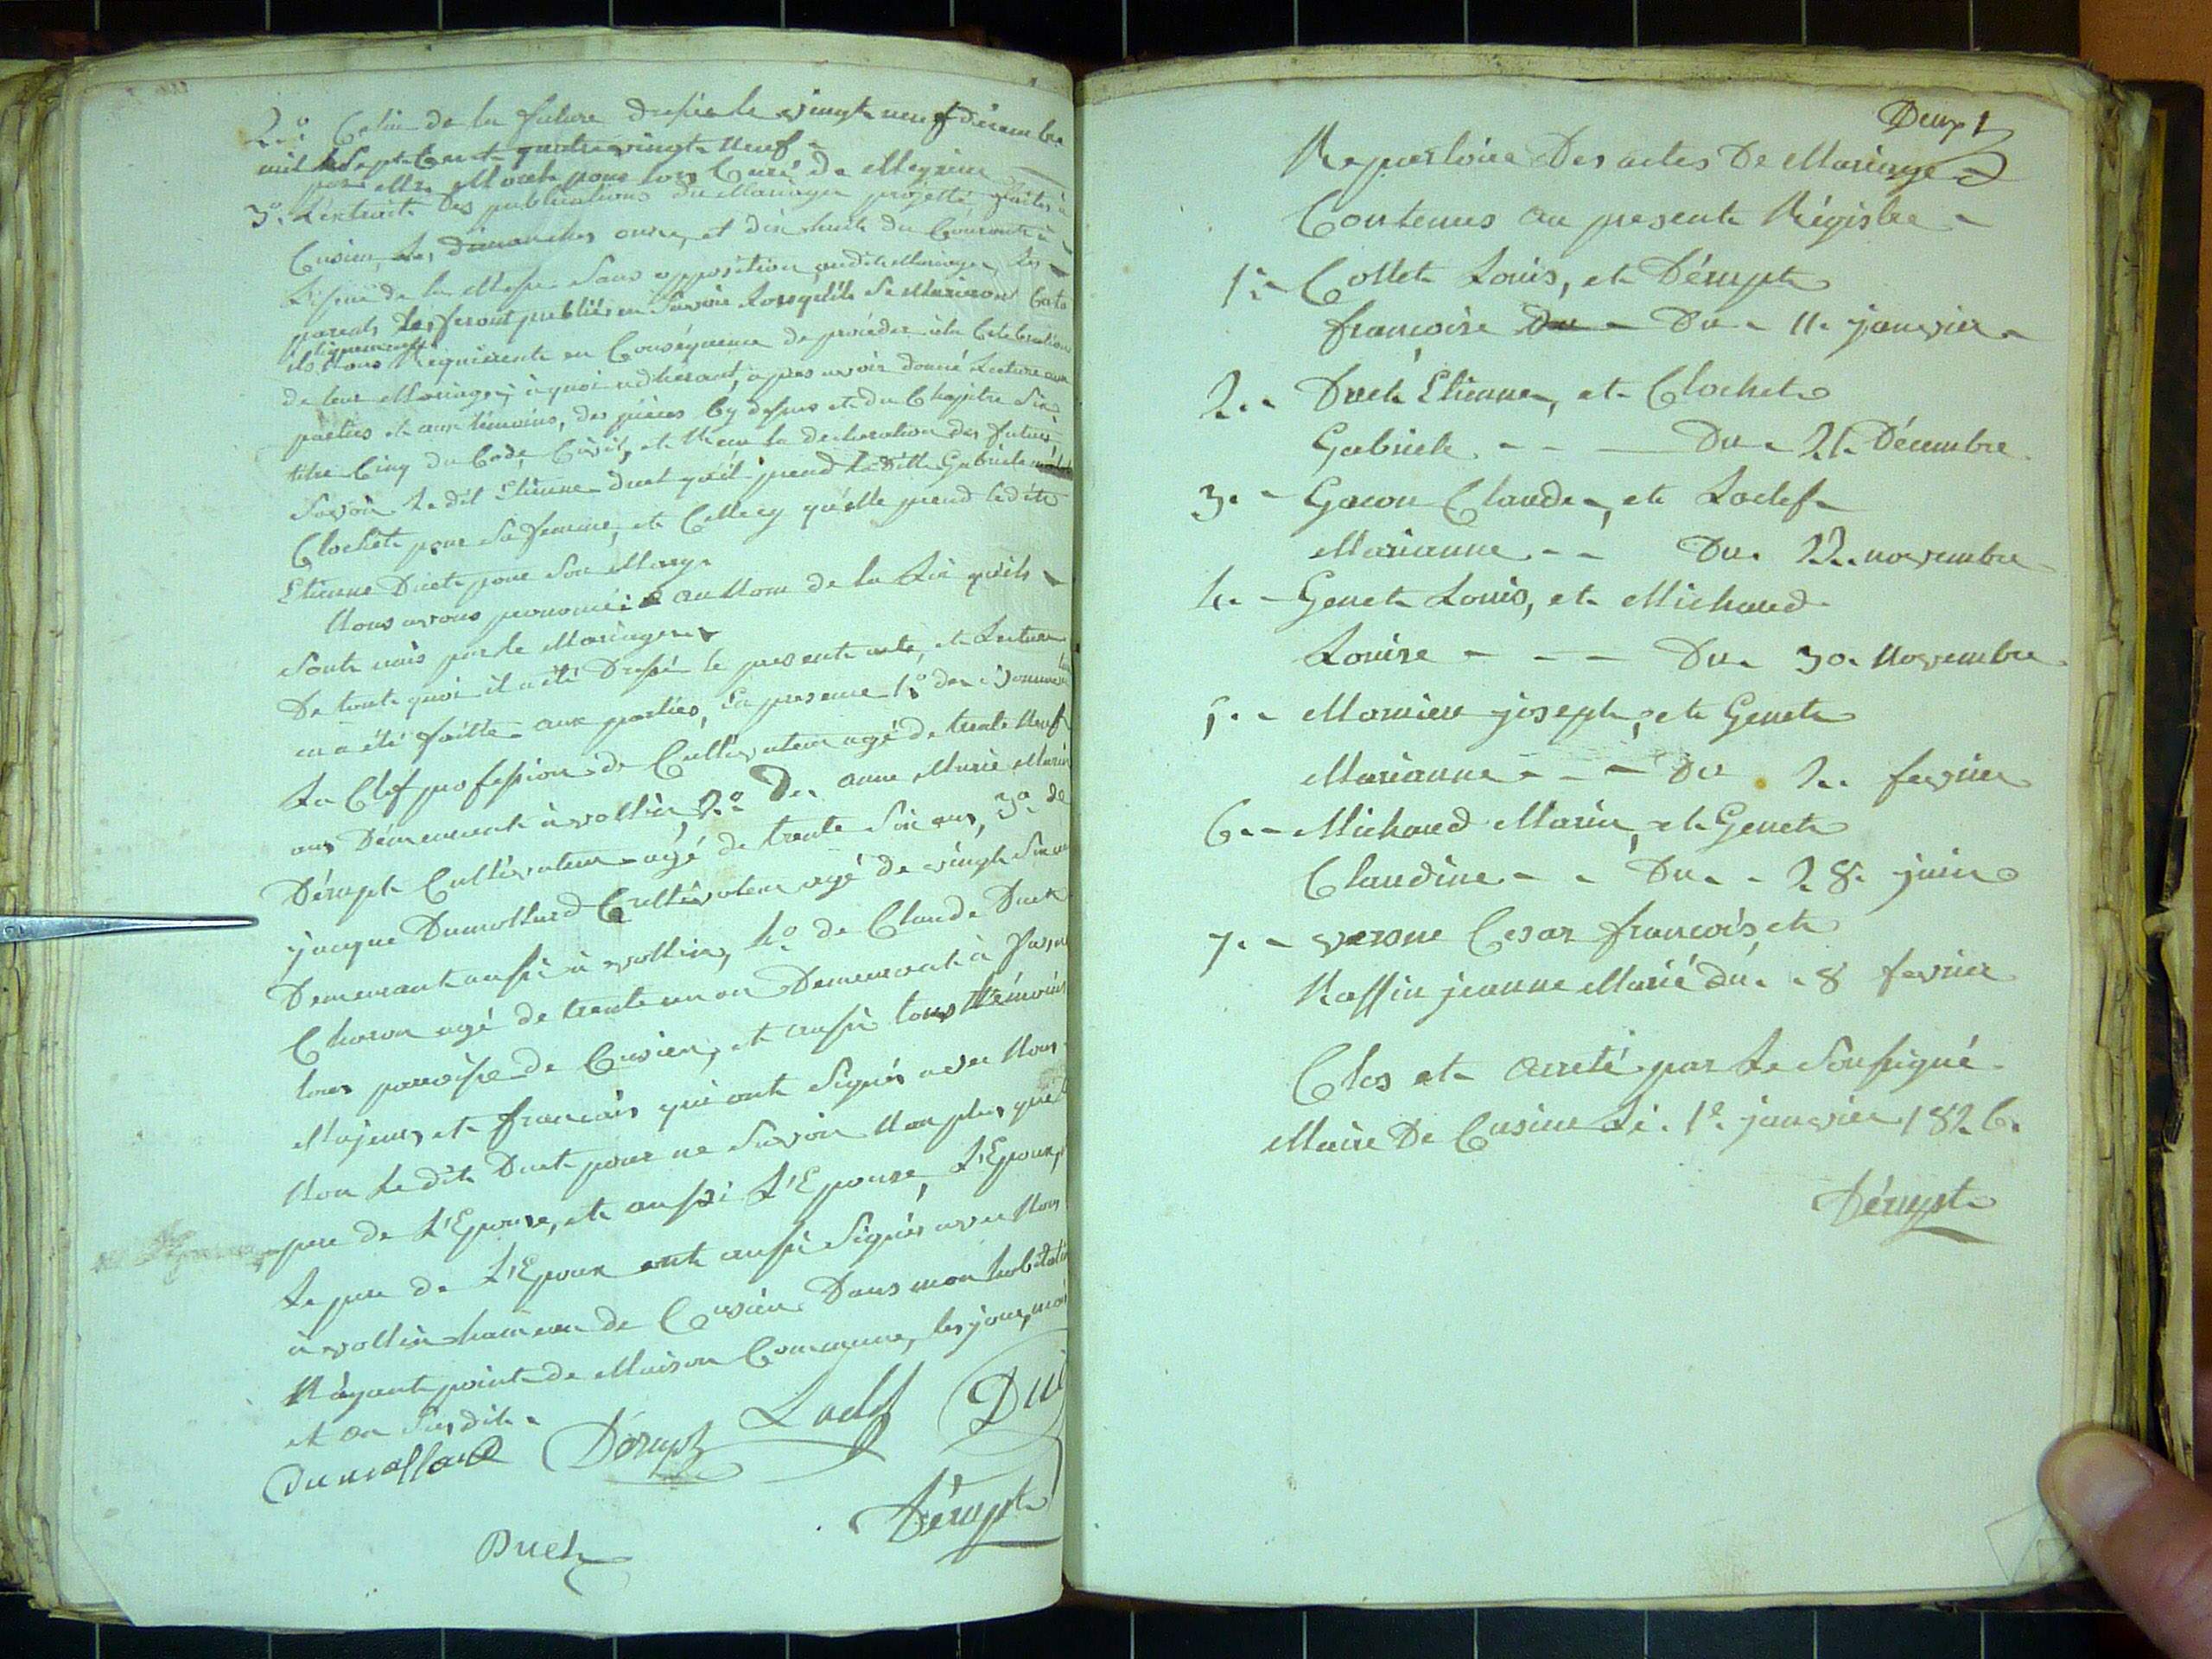 2.o Celui de la future dressé le vingt neuf décembre
mil sept Cent quatrevingt Neuf
par Mre Morel pour lors Curé de Meyrieu
3.o L'extrait des publications du Mariage projetté, faites à
Cusieu, Les dimanches onze, et dix huit du Courant à
L'issue de la Messe Sans opposition audit Mariage, les
parents
ils Nous Requierent en Conséquence de procéder à la Celebration
de leur Mariage; à quoi adherant, apres avoir donné Lecture aux
parties et aux témoins, des pièces Cy dessus et du Chapitre Six
titre Cinq du Code Civil, et Reçu la declaration des futurs,
Savoir Le dit Etienne Duet qu'il prend la ditte Gabriele
Clochet pour Sa femme, et Celle cy qu'elle prend ledit
Etienne Duet pour Son Mary.
Nous avons prononcé au Nom de la Loi qu'ils
Sont unis par le Mariage
De tout quoi il a été Dressé le present acte, et Lecture
en a été faitte aux parties, En presence 1.o de
La Clef profession de Cultivateur agé de trente Neuf
ans Demeurant à vollien, 2.o De anne Marie Marin
Dérupt Cultivateur agé de trente Six ans, 3.o de
jacque Dumollard Cultivateur agé de vingt Six ans
Demeurant aussi à vollien, 4.o de Claude Duet
Charon agé de trente un an Demeurant à
tous paroisse de Cusieu, et aussi tous témoins
Majeurs et français qui ont Signés avec Nous
Non Le dit Duet pour ne Savoir Non plus que le
pere de L'Epouse, et aussi L'Epouse, L'Epoux,
Le pere de L'Epoux ont aussi Signés avec Nous
à vollien hameau de Cusieu Dans mon habitation
N'ayant point de Maison Commune, les jour, mois
et an Susdit.
Dumollard Dérupt Laclef Duet
Duet Dérupt
Derupt
Repertoire Des actes De Mariage
Contenus au present Régistre
1.- Collet Louis, et Dérupt
francoise Du - Du - 11. janvier
2.- Duet Etienne, et Clochet
Gabriele - - - Du - 21. Décembre
3.- Gacon Claude, et Laclef
Marianne - - Du. 22. novembre
4.- Genet Louis, et Michaud
Louise - - - Du. 30. Novembre
5.- Morniere joseph, et Genet
Marianne - - - Du 2. fevrier
6.- Michaud Marin, et Genet
Claudine - - Du - 28. juin
7.- verone Cesar francois et
Raffin jeanne Marie du. 8 fevrier
Clos et arreté par Le Soussigné
Maire De Cusieu Le 1.e janvier 1826.
Dérupt